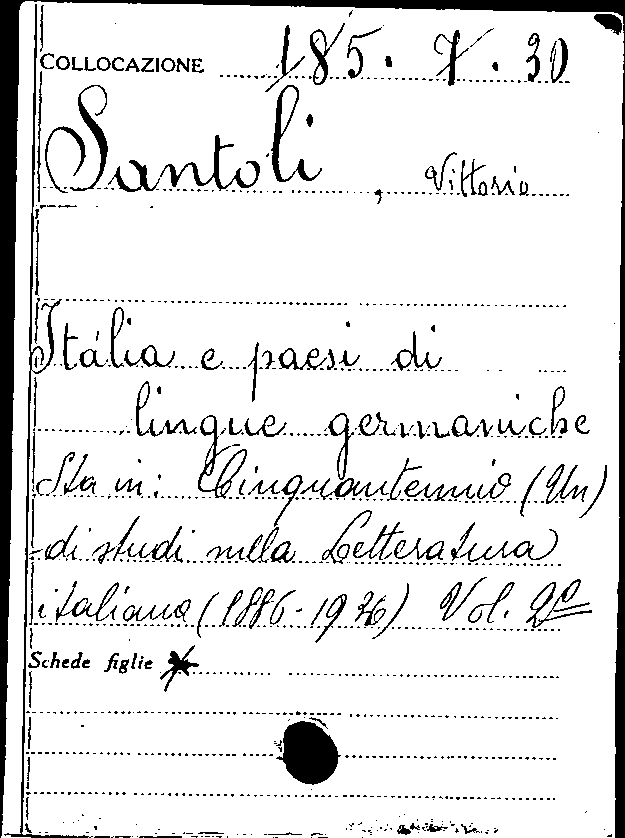 COLLOCAZIONE 185. 7. 30
Santoli, Vittorio
Italia e paesi di
lingue germaniche
Sta in: Cinquantennio (Un)
di studi sulla Letteratura
italiana (1886-1936) Vol. 2º
Schede figlie